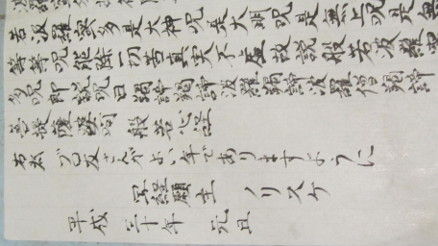 若波羅蜜多是大神呪是大明呪是無上呪是無
等等呪能除一切苦真実不虚故説般若波羅蜜
多呪即説呪曰羯諦羯諦波羅羯諦波羅僧羯諦
菩提薩婆訶 般若心経
右為 ブロ友さんがよい年でありますように
写経願主 ノリスケ
平成 三十年 元旦